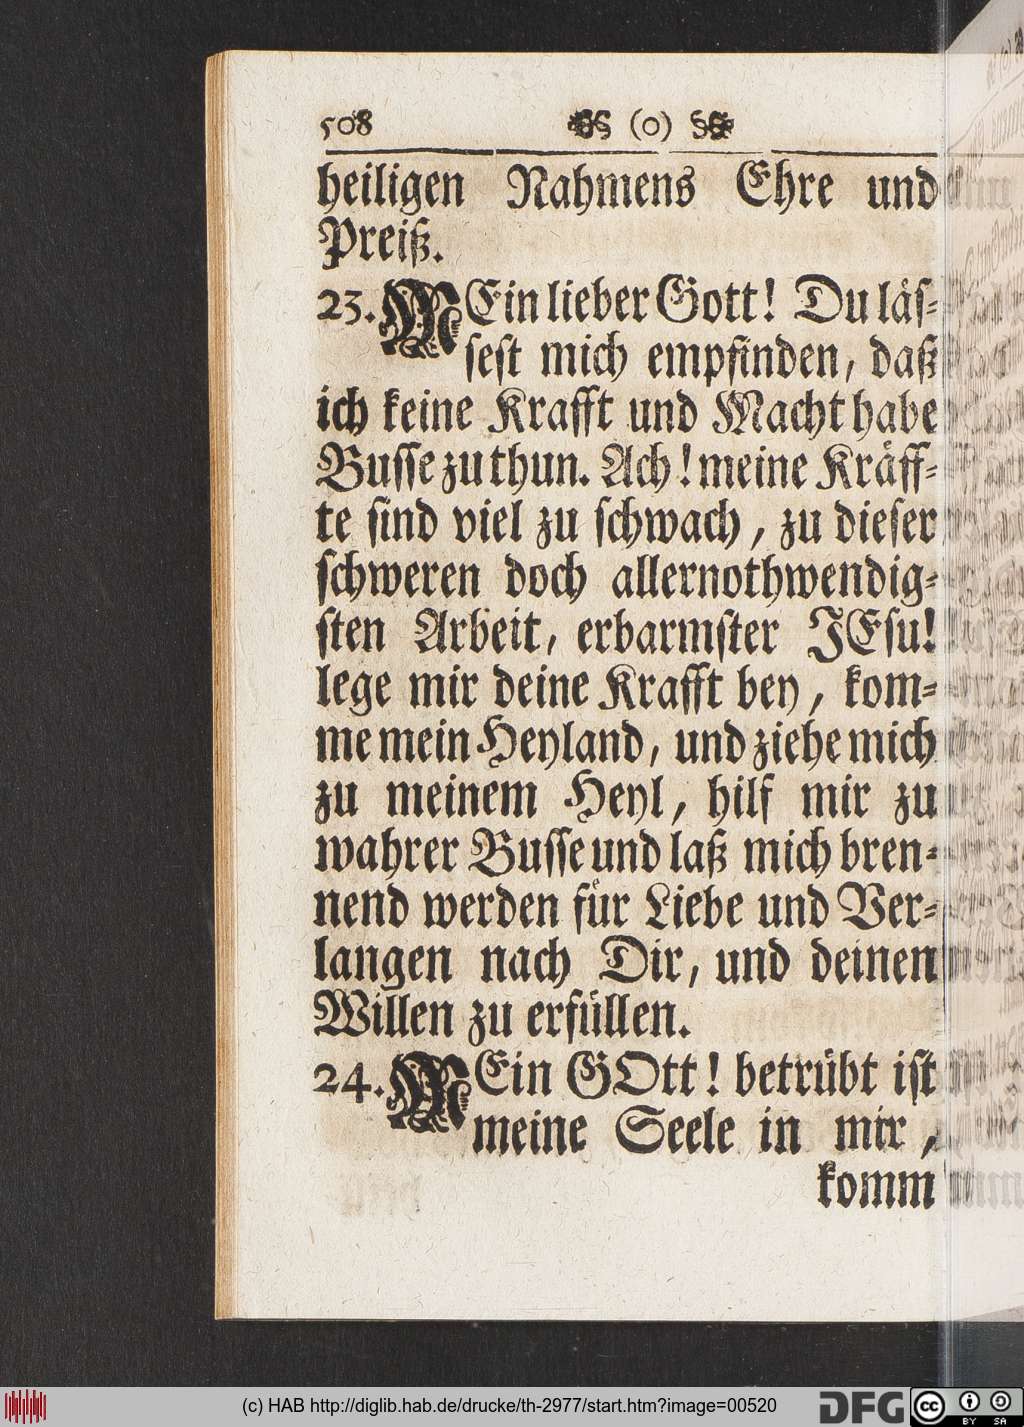 508 (o)
heiligen Nahmens Ehre und
Preiß.
23. MEin lieber Gott! Du läs-
sest mich empfinden, daß
ich keine Krafft und Macht habe
Busse zu thun. Ach! meine Kräff-
te sind viel zu schwach, zu dieser
schweren doch allernothwendig-
sten Arbeit, erbarmster JEsu!
lege mir deine Krafft bey, kom-
me mein Heyland, und ziehe mich
zu meinem Heyl, hilf mir zu
wahrer Busse und laß mich bren-
nend werden für Liebe und Ver-
langen nach Dir, und deinen
Willen zu erfüllen.
24. MEin GOtt! betrübt ist
meine Seele in mir,
komm
(c) HAB http://diglib.hab.de/drucke/th-2977/start.htm?image=00520
DFG
cc BY SA